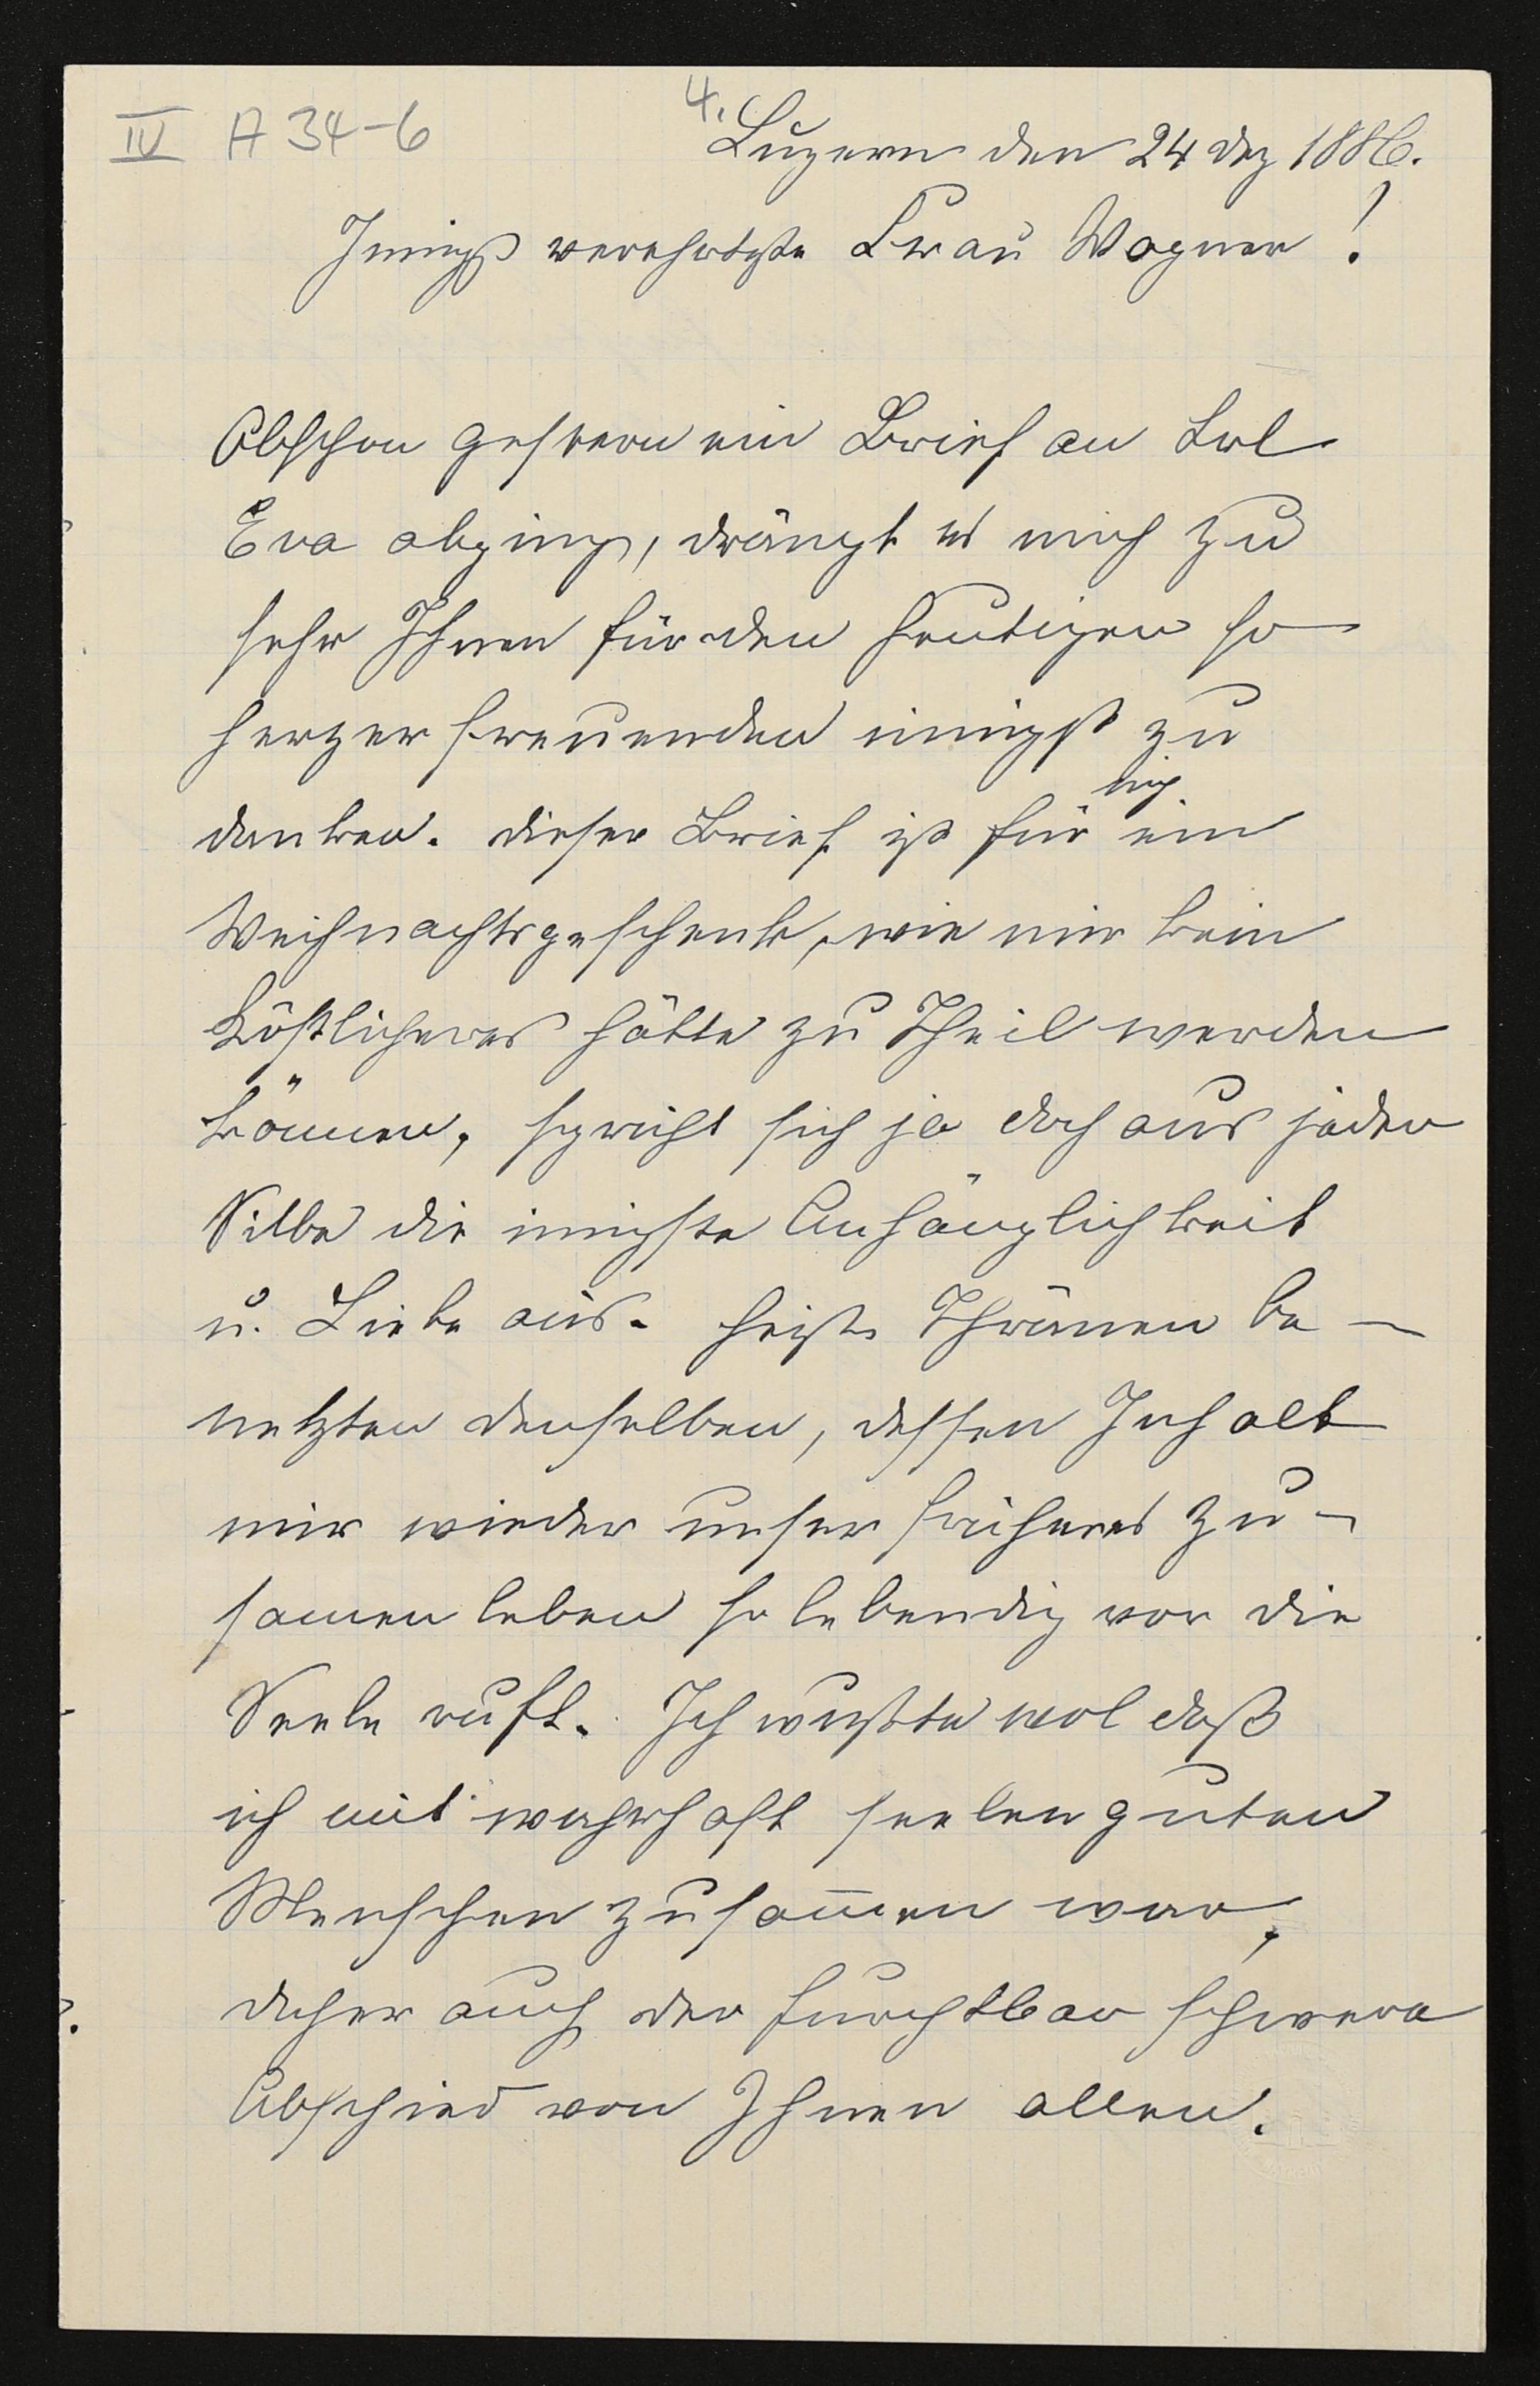 IV A 34-6
4.
Luzern den 24 Dez 1886.
Innigst verehrteste Frau Wagner!
Obschon gestern ein Brief an Frl
Eva abging, drängt es mich zu
sehr Ihnen für den heutigen so
herzerfreuenden innigst zu
danken. Dieser Brief ist für mich ein
Weihnachtsgeschenk, wie mir kein
Köstlicheres hätte zu Theil werden
können, spricht sich ja doch aus jeder
Silbe die innigste Anhänglichkeit
u. Liebe aus. Heiße Thränen be-
netzten denselben, dessen Inhalt
mir wieder unser früheres Zu-
samenleben so lebendig vor die
Seele ruft. Ich wußte wol daß
ich mit wahrhaft seelenguten
Menschen zusam̅en war,
daher auch der furchtbar schwere
Abschied von Ihnen allen.